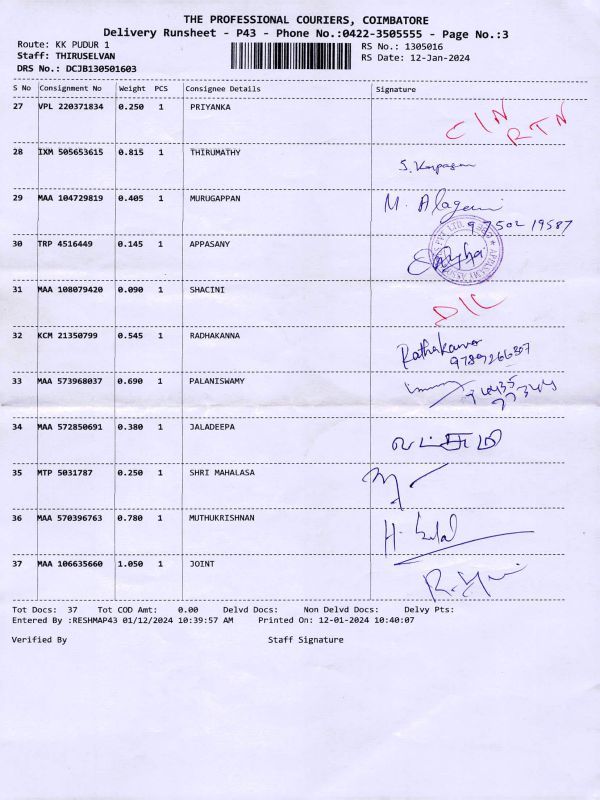 THE PROFESSIONAL COURIERS, COIMBATORE
Delivery Runsheet - P43 - Phone No.:0422-3505555 - Page No.:3
Route: KK PUDUR 1 RS No.: 1305016
Staff: THIRUSELVAN RS Date: 12-Jan-2024
DRS No.: DCJB130501603
S No Consignment No Weight PCS Consignee Details Signature
27 VPL 220371834 0.250 1 PRIYANKA
CIN
RTN
28 IXM 505653615 0.815 1 THIRUMATHY
29 MAA 104729819 0.405 1 MURUGAPPAN M.
97502 19587
30 TRP 4516449 0.145 1 APPASANY
31 MAA 108079420 0.090 1 SHACINI
D/L
32 KCM 21350799 0.545 1 RADHAKANNA
33 MAA 573968037 0.690 1 PALANISWAMY
34 MAA 572850691 0.380 1 JALADEEPA
35 MTP 5031787 0.250 1 SHRI MAHALASA
36 MAA 570396763 0.780 1 MUTHUKRISHNAN
37 MAA 106635660 1.050 1 JOINT
Tot Docs: 37 Tot COD Amt: 0.00 Delvd Docs: Non Delvd Docs: Delvy Pts:
Entered By :RESHMAP43 01/12/2024 10:39:57 AM Printed On: 12-01-2024 10:40:07
Verified By Staff Signature